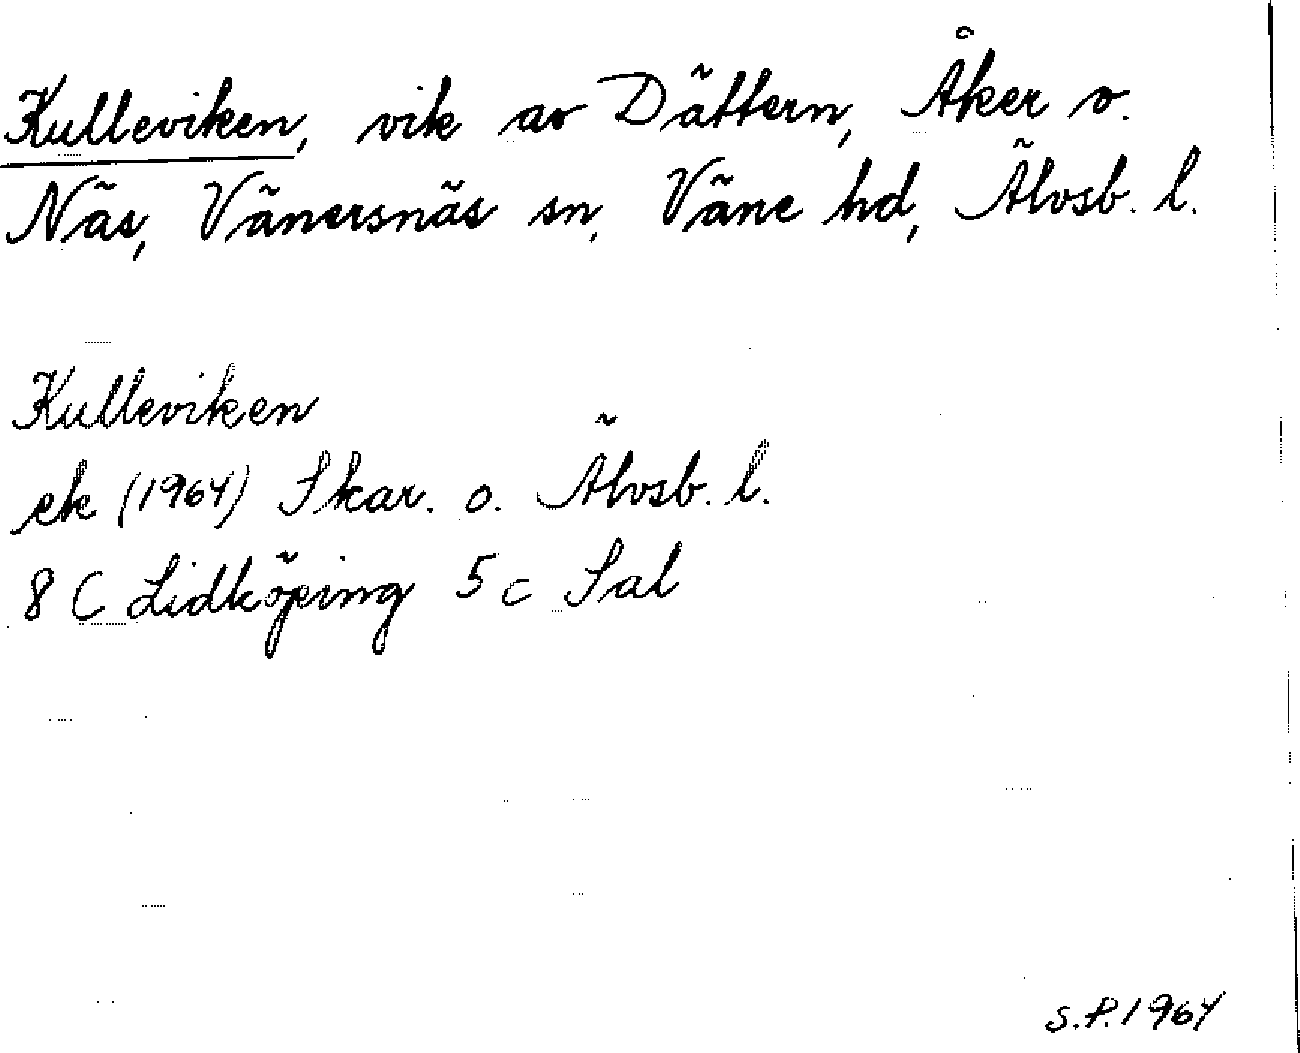 Kulleviken, vik av Dättern, Åker o.
Näs, Vänersnäs sn, Väne hd, Älvsb. l.
Kulleviken
ek (1964) Skar. o. Älvsb. l.
8 C Lidköping 5 c Sal
S.P. 1964